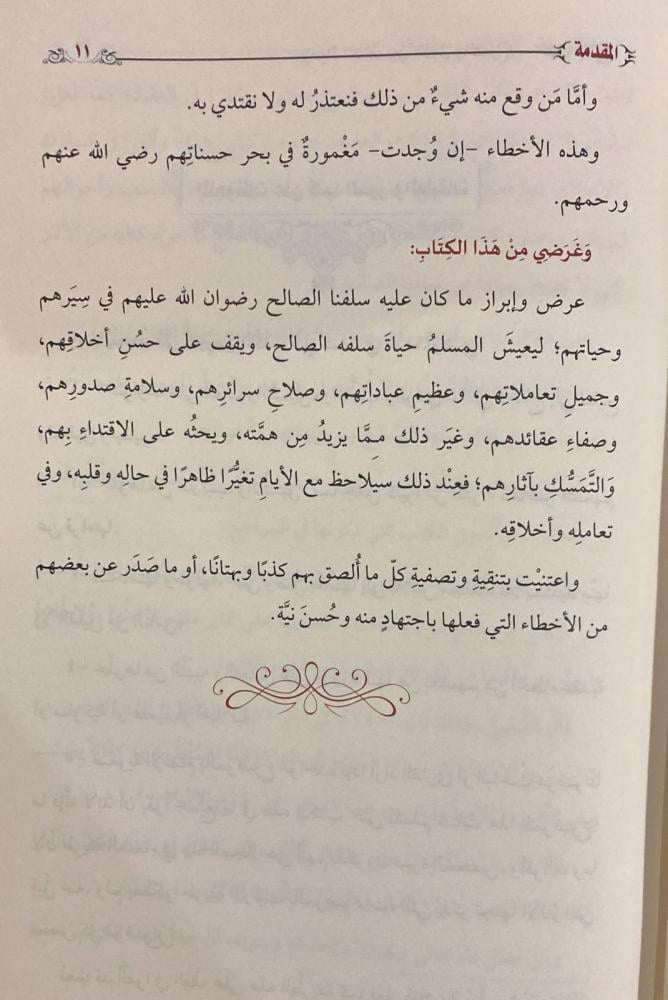 المقدمة ١١
وأمَّا مَن وقع منه شيءٌ من ذلك فنعتذرُ له ولا نقتدي به.
وهذه الأخطاء -إن وُجدت- مَغْمورةٌ في بحر حسناتِهم رضي الله عنهم
ورحمهم.
وَغَرَضِي مِنْ هَذَا الكِتَابِ:
عرض وإبراز ما كان عليه سلفنا الصالح رضوان الله عليهم في سِيَرهم
وحياتهم؛ ليعيشَ المسلمُ حياةَ سلفه الصالح، ويقف على حسُنِ أخلاقِهم،
وجميلِ تعاملاتِهم، وعظيمِ عباداتِهم، وصلاحِ سرائرِهم، وسلامةِ صدورِهم،
وصفاءِ عقائدهم، وغيَر ذلك مِمَّا يزيدُ مِن همَّته، ويحثُه على الاقتداءِ بِهم،
وَالتَّمَسُّكِ بآثارِهم؛ فعِنْد ذلك سيلاحظ مع الأيامِ تغيُّرًا ظاهرًا في حالِه وقلبِه، وفي
تعاملِه وأخلاقِه.
واعتنيْت بتنقِيةِ وتصفيةِ كلّ ما أُلصق بهم كذبًا وبهتانًا، أو ما صَدَر عن بعضهم
من الأخطاء التي فعلها باجتهادٍ منه وحُسنَ نيَّة.